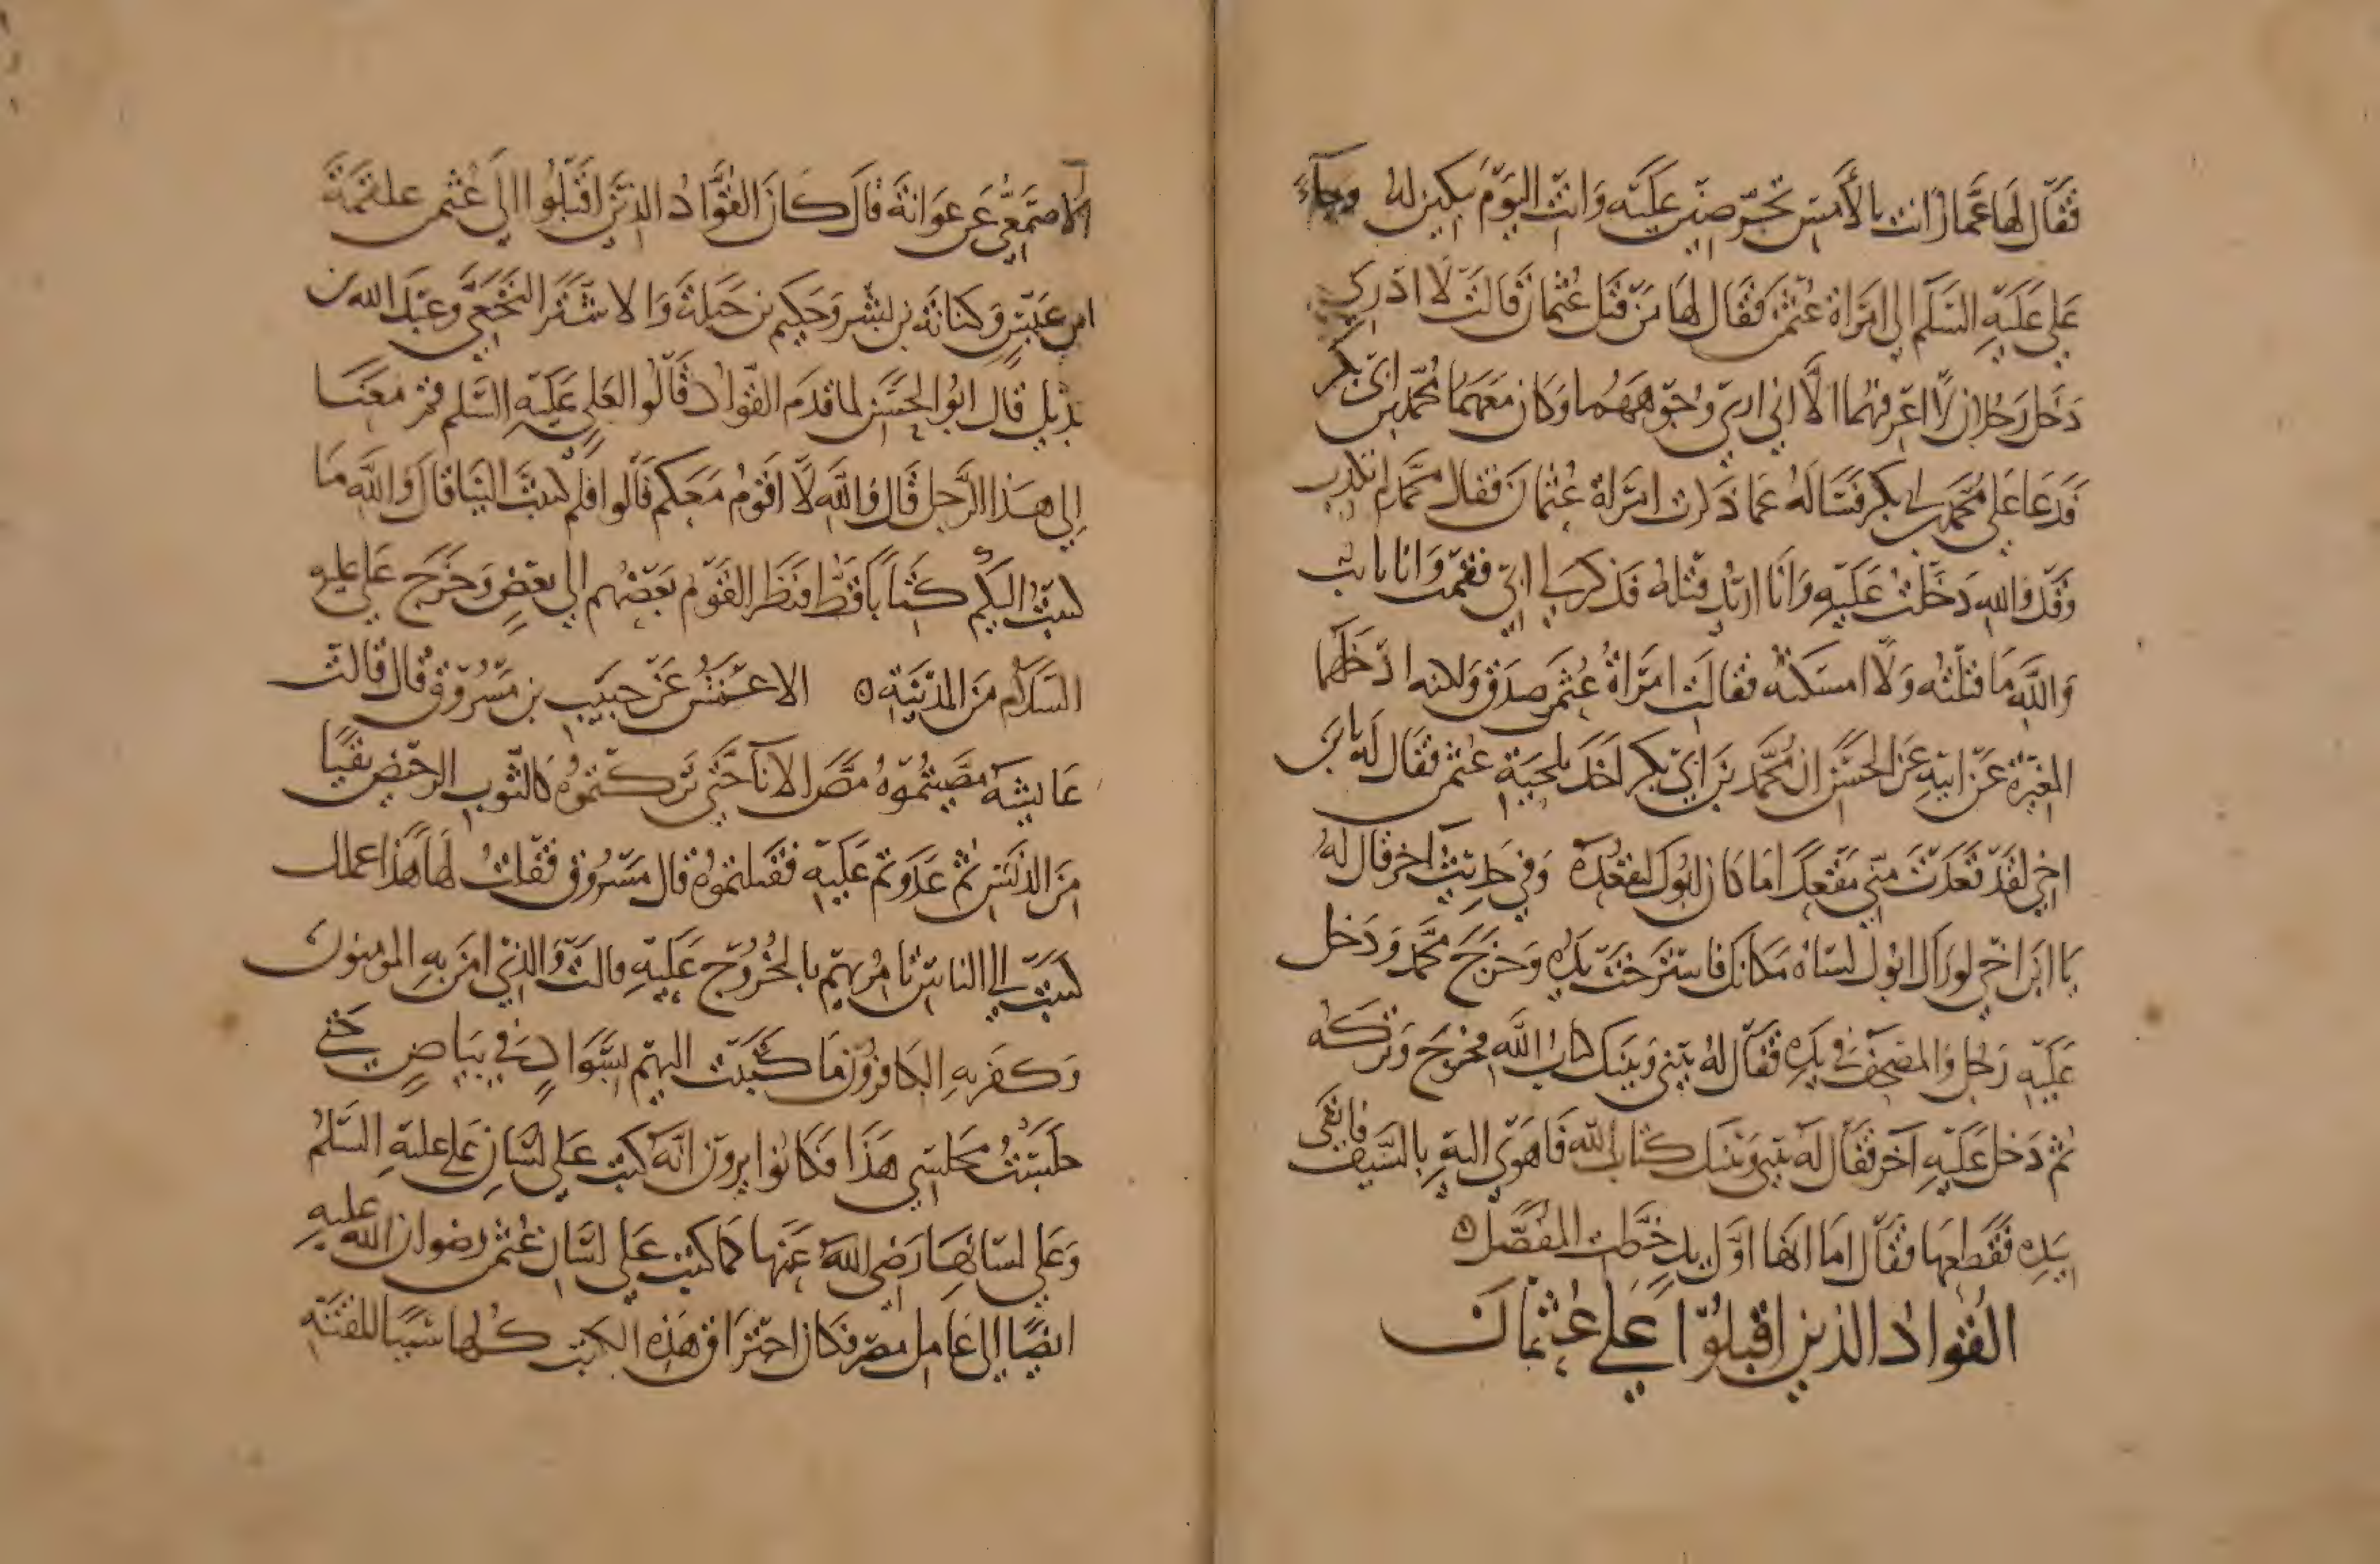 فقال لها عمار انت بالأمس تحرضين عليه وانت اليوم تبكين له وجاء
علي عليه السلم الي امراة عثمن فقال لها من قتل عثمان قالت لا ادري
دخل رجلان لا اعرفهما الا اني اري وجوههما وكان معهما محمد بن ابي بكر
فدعا علي محمد بن ابي بكر فساله عما ذكرت امراة عثمان فقال محمد لم تكذب
وقد والله دخلت عليه وانا اريد قتله فذكر لي ابي فقمت وانا تايب
والله ما قتلته ولا امسكته فقالت امراة عثمن صدق ولكنه ادخلهما
المغيرة عن ابيه عن الحسن ان محمد بن ابي بكر اخذ بلحية عثمن فقال له يا بن
اخي لقد قعدت مني مقعدا ما كان ابوك ليقعده وفي حديث آخر قال له
يا ابن اخي لو راك ابوك لساه مكانك فاسترخت يده وخرج محمد ودخل
عليه رجل والمصحف في يده فقال له بيني وبينك كتاب الله فخرج وتركه
ثم دخل عليه آخر فقال له بيني وبينك كتاب الله فاهوي اليه بالسيف فاتقى
بيده فقطعها فقال اما انها اول يد خطت المفصل ه
القواد الذين اقبلوا علي عثمان
الاصمعي عن عوانة قال كان القواد الذين اقبلوا الي عثمن علقمة
ابن عبس وكنانة بن بشر وحكيم بن جبلة والاشتر النخعي وعبد الله بن
بديل قال ابو الحسن لما قدم القواد قالوا لعلي عليه السلم قم معنا
الي هذا الرجل قال والله لا اقوم معكم قالوا فلم كتبت الينا قال والله ما
كتبت اليكم كتابا قط فنظر القوم بعضهم الي بعض وخرج علي عليه
السلام من المدينة ه الاعمش عن حبيب بن مسروق قال قالت
عايشه مصيتموه مص الانآ حتي تركتموه كالثوب الرحيض نقيا
من الدنس ثم عدوتم عليه فقتلتموه قال مسروق فقلت لها هذا عملك
كتبت الي الناس تامريهم بالخروج عليه قالت والذي امن به المومنون
وكفر به الكافرون ما كتبت اليهم بسواد في بياض حتي
جلست مجلسي هذا فكانوا يرون انه كتب علي لسان علي عليه السلم
وعلي لسانها رضي الله عنها كما كتب علي لسان عثمن رضوان الله عليه
ايضا الي عامل مصر فكان اختراق هذه الكتب كلها سببا للفتنة